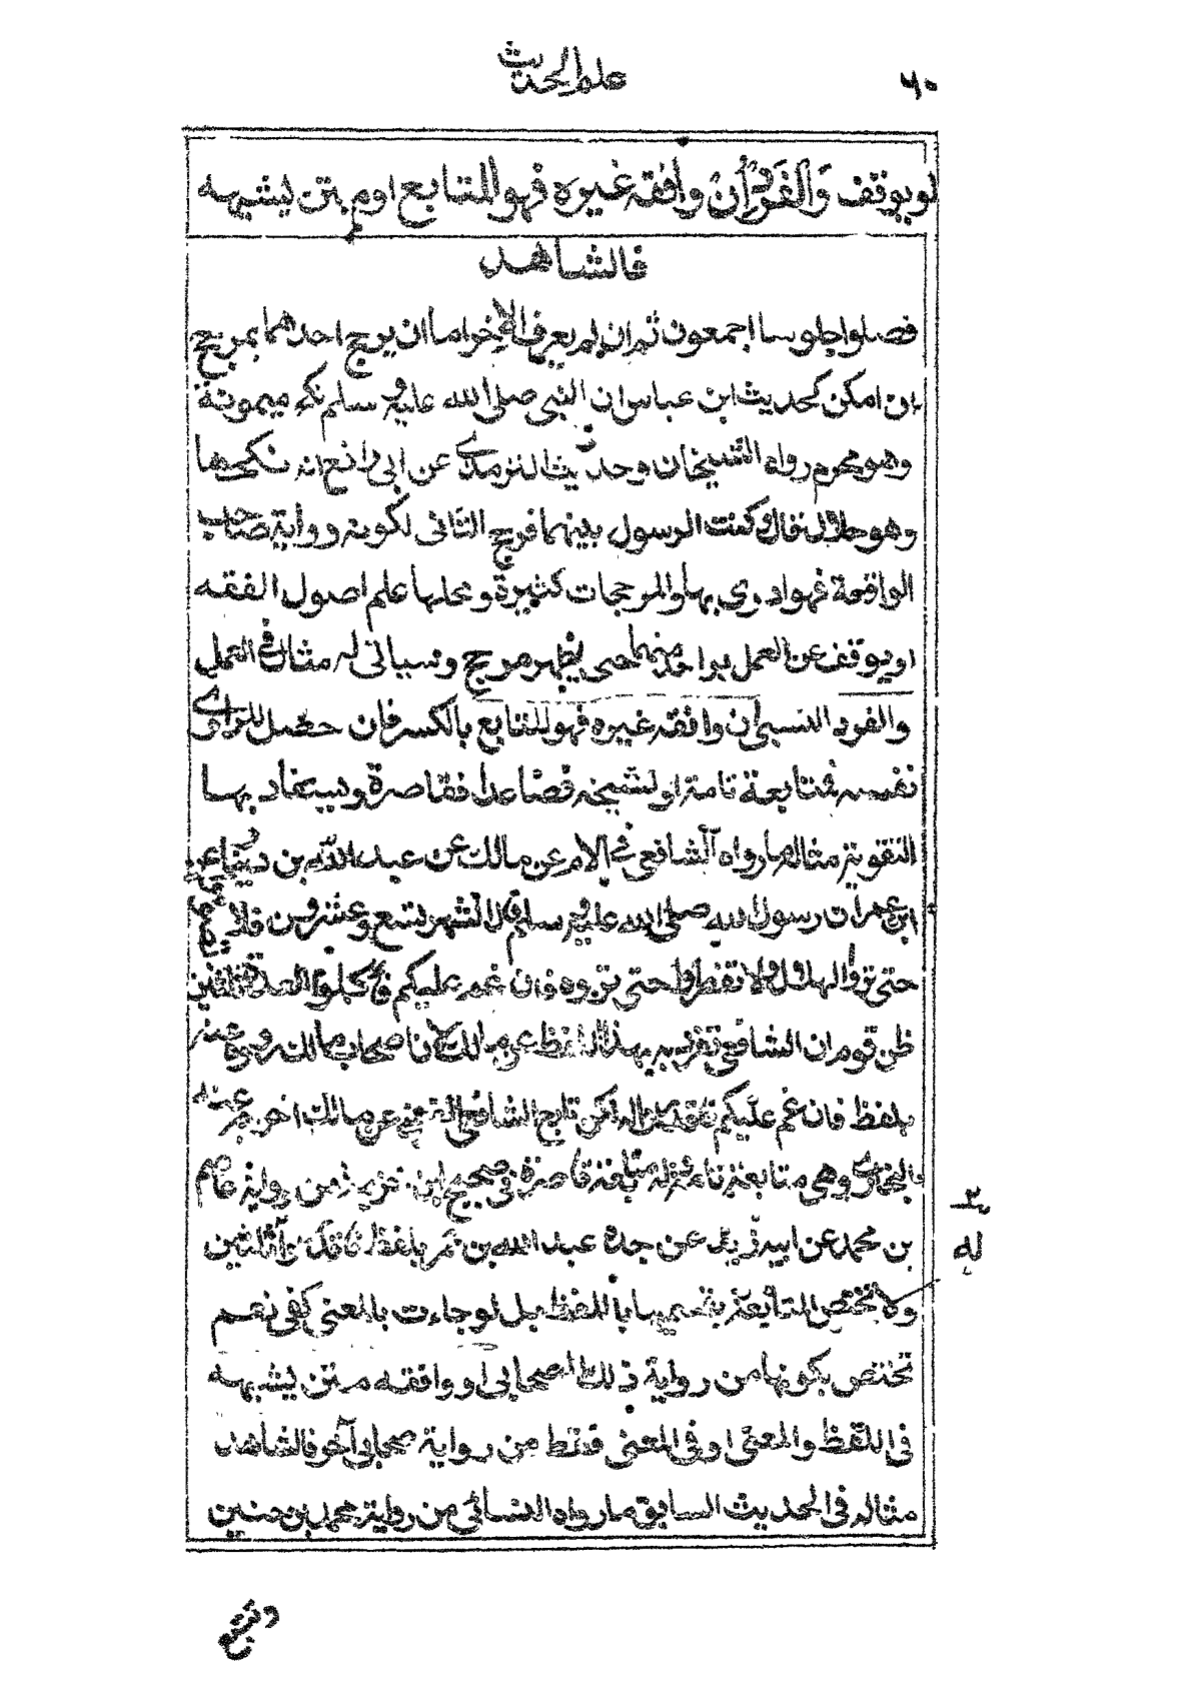 ٦٠
علم الحديث
او يوقف وَالفَرْدُ اِنْ وافقه غيره فهو المتابع او متن يشبهه
فالشاهد
فصلوا جلوسا اجمعون ثم ان لم يعرف الآخر اما ان يرجح احدهما بمرجح
ان امكن كحديث ابن عباس ان النبي صلى الله عليه وسلم نكح ميمونة
وهو محرم رواه الشيخان وحديث الترمذي عن ابي رافع انه نكحها
وهو حلال قال وكنت الرسول بينهما فرجح الثاني لكونه رواية صاحب
الواقعة فهو ادرى بها والمرجحات كثيرة ومحلها علم اصول الفقه
او يوقف عن العمل بواحد منهما حتى يظهر مرجح وسياتي له مثال في العمل
والفرد النسبي ان وافقه غيره فهو المتابع بالكسر فان حصل للراوي
نفسه فمتابعة تامة او لشيخه فصاعدا فقاصرة ويستفاد بها
التقوية مثاله ما رواه الشافعي في الام عن مالك عن عبد الله بن دينار عن
ابن عمر ان رسول الله صلى الله عليه وسلم قال الشهر تسع وعشرون فلا تصوموا
حتى تروا الهلال ولا تفطروا حتى تروه فان غم عليكم فاكملوا العدة ثلثين
ظن قوم ان الشافعي تفرد به بهذا اللفظ عن مالك لان اصحاب مالك رووه عنه
بلفظ فان غم عليكم فاقدروا له لكن تابع الشافعي القعنبي عن مالك اخرجه عنه
البخاري وهي متابعة تامة وله متابعة قاصرة في صحيح ابن خزيمة من رواية عاصم
بن محمد عن ابيه زيد عن جده عبد الله بن عمر بلفظ فاقدروا ثلثين
ولا تختص المتابعة بقسميها باللفظ بل لو جاءت بالمعنى كفى نعم
تختص بكونها من رواية ذلك الصحابي او وافقه متن يشبهه
في اللفظ والمعنى او في المعنى فقط من رواية صحابي آخر فالشاهد
مثاله في الحديث السابق ما رواه النسائي من رواية محمد بن حنين
٢
له
وتتبع